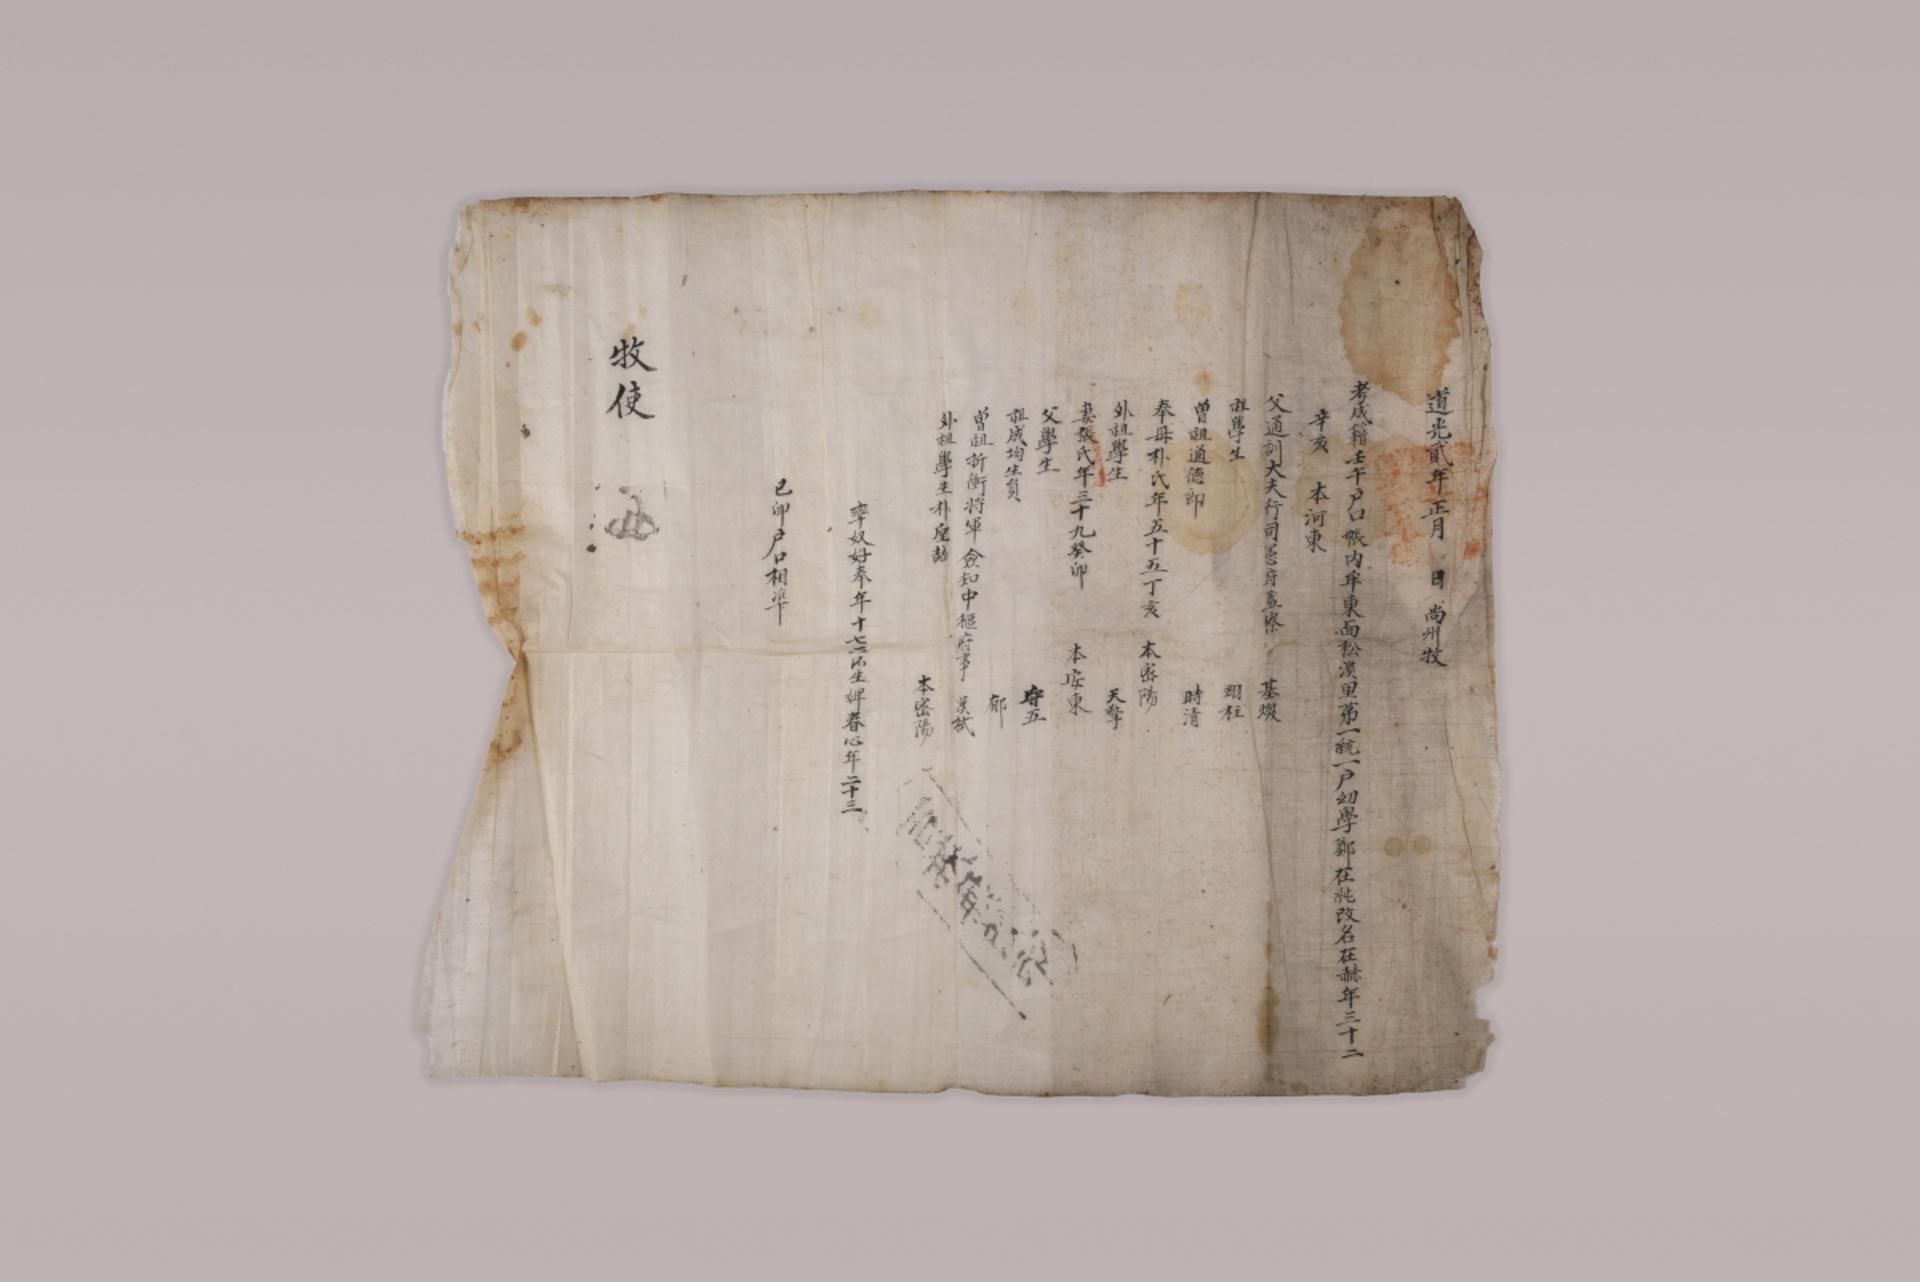 道光貳年正月 日 尚州牧
考成籍壬午戶口帳內牟東面松濱里第一統一戶幼學鄭在純改名在赫年三十二
辛亥 本河東
父通訓大夫行司憲府監察 基燮
祖學生 翊柱
曾祖通德郎 時淸
奉母朴氏年五十五丁亥 本密陽
外祖學生 天擎
妻張氏年三十九癸卯 本安東
父學生 守五
祖成均生員 郁
曾祖折衝將軍僉知中樞府事 漢栻
外祖學生朴 本密陽
率奴好奉年十七 所生婢春心年二十三
己卯戶口相準
牧使